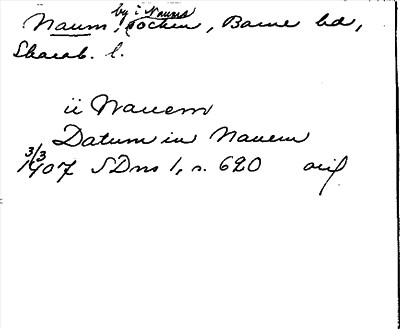 by i Naums
Naum, socken, Barne hd,
Skarab. l.
ü Nauem
Datum in Nauem
3/3
1407 SDns 1, s. 620 orig